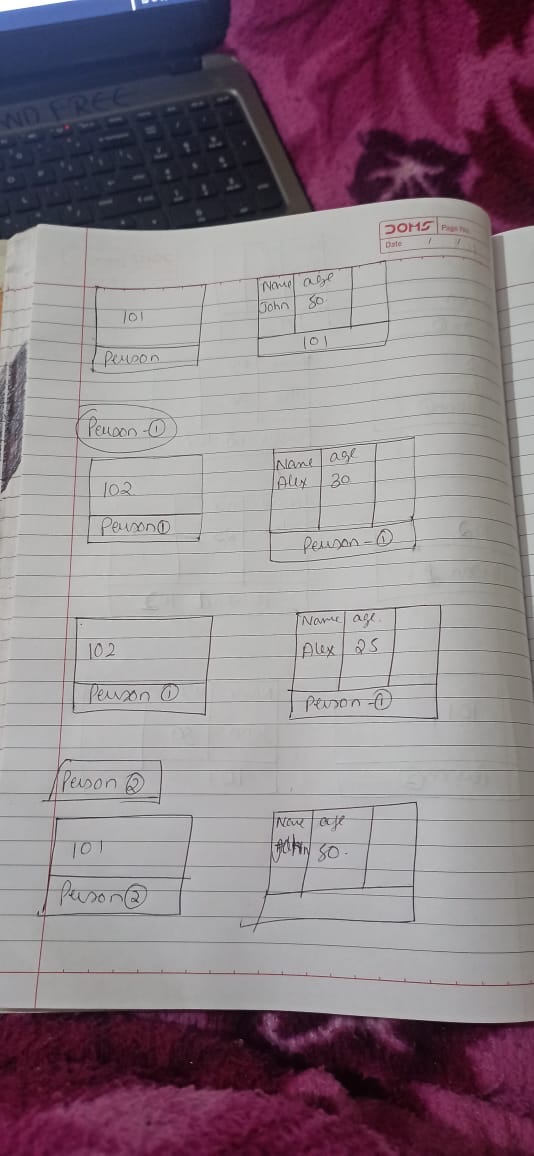 WD FREE
DOMS
Page No.
Date / /
101
Person
Name age
John 50
101
Person-①
102
Person①
Name age
Alex 30
Person-①
102
Person ①
Name age.
Alex 25
Person-①
Person ②
101
Person②
Name age
50.